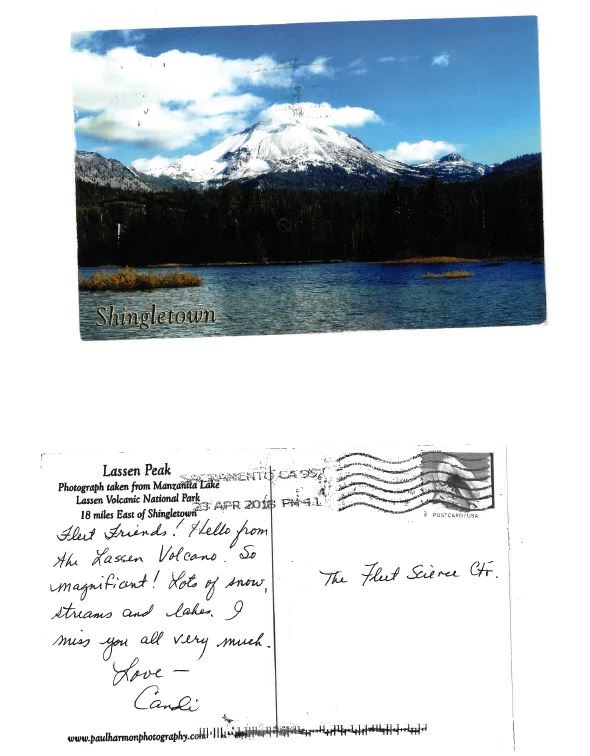 Shingletown
Lassen Peak
Photograph taken from Manzanita Lake
Lassen Volcanic National Park
18 miles East of Shingletown
SACRAMENTO CA 957
23 APR 2018 PM 4 L
POSTCARD USA
Fleet Friends! Hello from
the Lassen Volcano. So
magnificant! Lots of snow,
streams and lakes. I
miss you all very much.
Love —
Candi
The Fleet Science Ctr.
www.paulharmonphotography.com